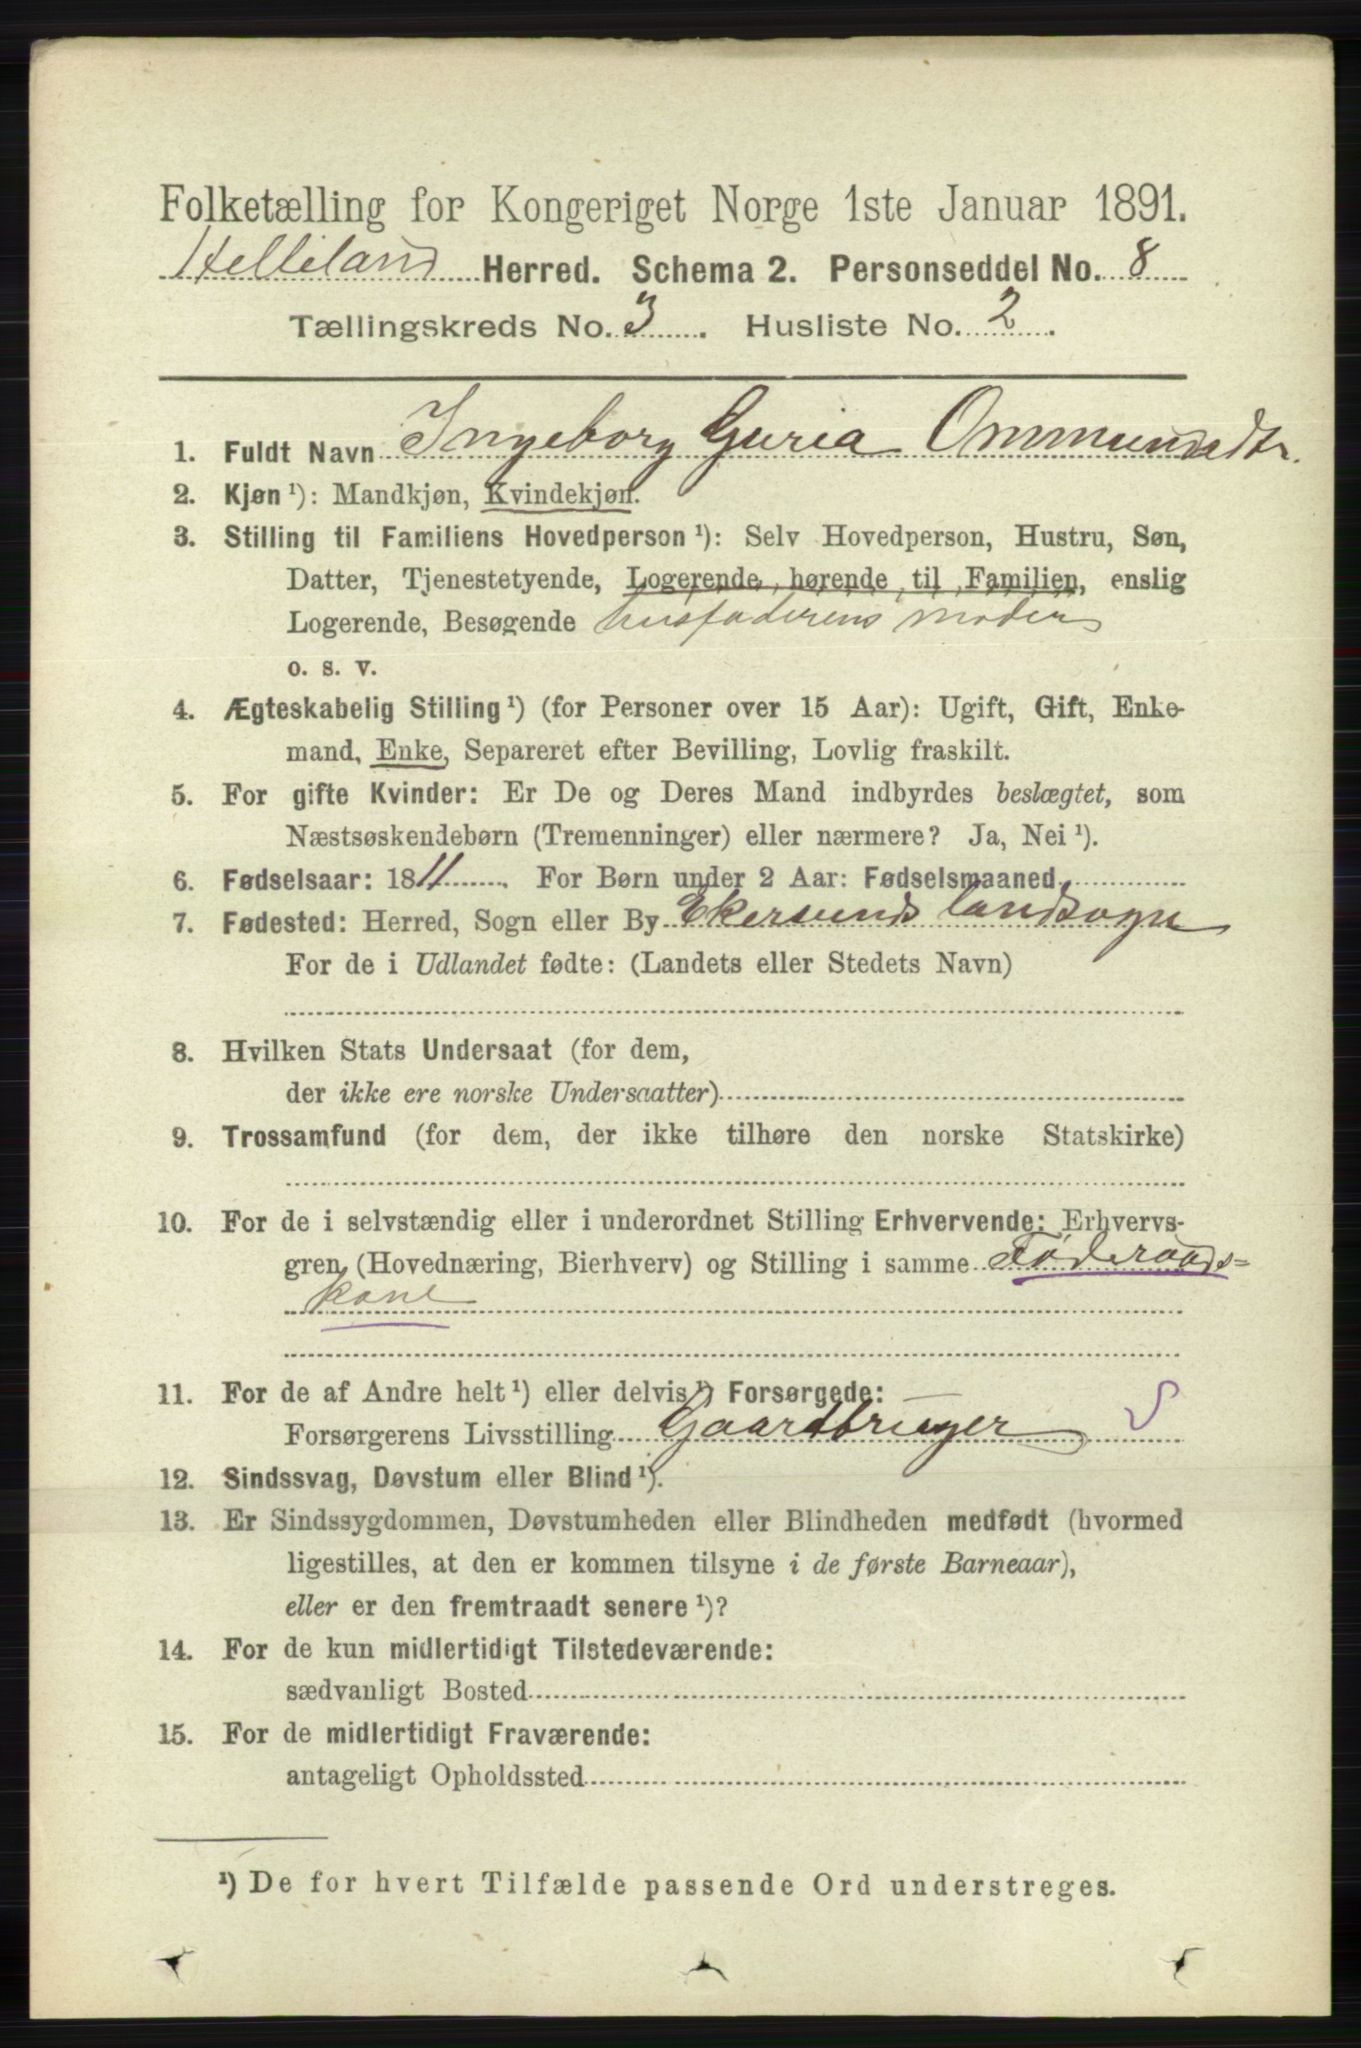 Folketælling for Kongeriget Norge 1ste Januar 1891.
Helleland Herred. Schema 2. Personseddel No. 8
Tællingskreds No. 3. Husliste No. 2.
1. Fuldt Navn Ingeborg Guria Ommundsdtr.
2. Kjøn ¹): Mandkjøn, Kvindekjøn.
3. Stilling til Familiens Hovedperson ¹): Selv Hovedperson, Hustru, Søn,
Datter, Tjenestetyende, Logerende hørende til Familien, enslig
Logerende, Besøgende husfaderens moder
o. s. v.
4. Ægteskabelig Stilling ¹) (for Personer over 15 Aar): Ugift, Gift, Enke-
mand, Enke, Separeret efter Bevilling, Lovlig fraskilt.
5. For gifte Kvinder: Er De og Deres Mand indbyrdes beslægtet, som
Næstsøskendebørn (Tremenninger) eller nærmere? Ja, Nei ¹).
6. Fødselsaar: 1811. For Børn under 2 Aar: Fødselsmaaned
7. Fødested: Herred, Sogn eller By Ekersunds landsogn
For de i Udlandet fødte: (Landets eller Stedets Navn)
8. Hvilken Stats Undersaat (for dem,
der ikke ere norske Undersaatter)
9. Trossamfund (for dem, der ikke tilhøre den norske Statskirke)
10. For de i selvstændig eller i underordnet Stilling Erhvervende: Erhvervs-
gren (Hovednæring, Bierhverv) og Stilling i samme Føderaads=
kone
11. For de af Andre helt ¹) eller delvis ¹) Forsørgede:
Forsørgerens Livsstilling Gaardbruger S
12. Sindssvag, Døvstum eller Blind ¹).
13. Er Sindssygdommen, Døvstumheden eller Blindheden medfødt (hvormed
ligestilles, at den er kommen tilsyne i de første Barneaar),
eller er den fremtraadt senere ¹)?
14. For de kun midlertidigt Tilstedeværende:
sædvanligt Bosted
15. For de midlertidigt Fraværende:
antageligt Opholdssted
¹) De for hvert Tilfælde passende Ord understreges.